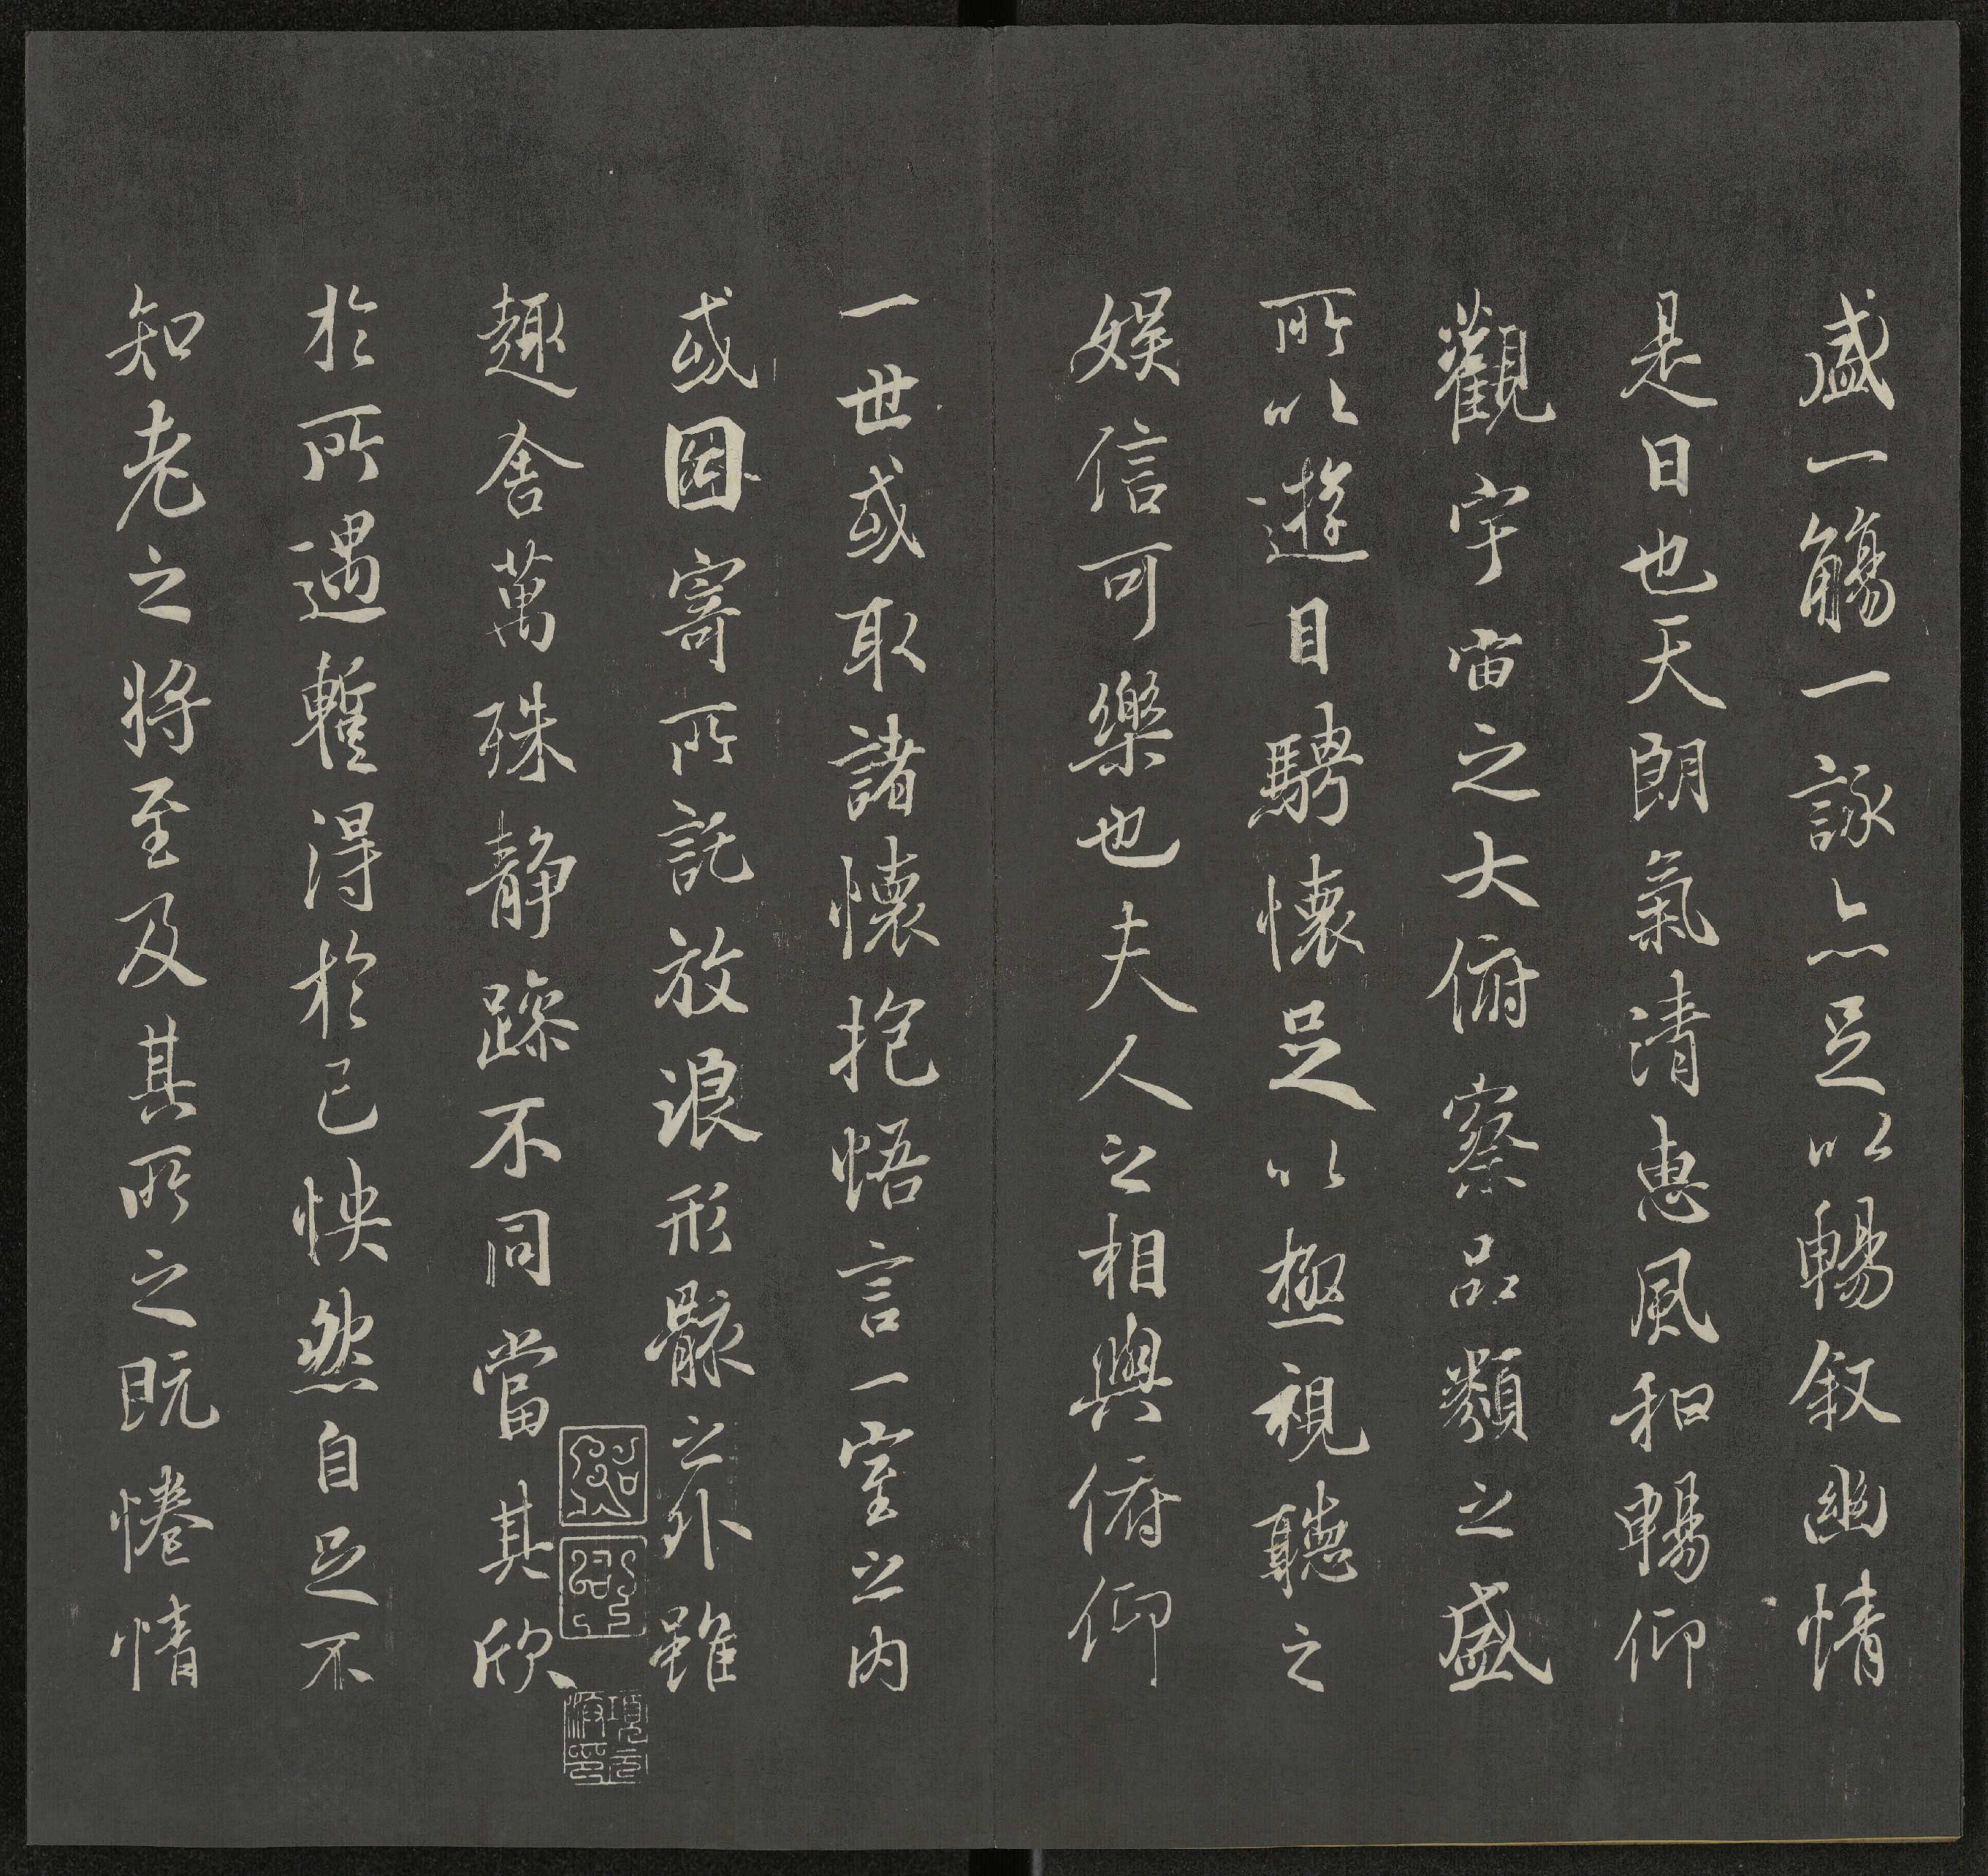 盛一觴一詠亦足以暢叙幽情
是日也天朗氣清惠風和暢仰
觀宇宙之大俯察品類之盛
所以遊目騁懷足以極視聽之
娛信可樂也夫人之相與俯仰
一世或取諸懷抱悟言一室之内
或因寄所託放浪形骸之外雖
趣舍萬殊静躁不同當其欣
於所遇暫得於己怏然自足不
知老之將至及其所之既惓情
項元汴印